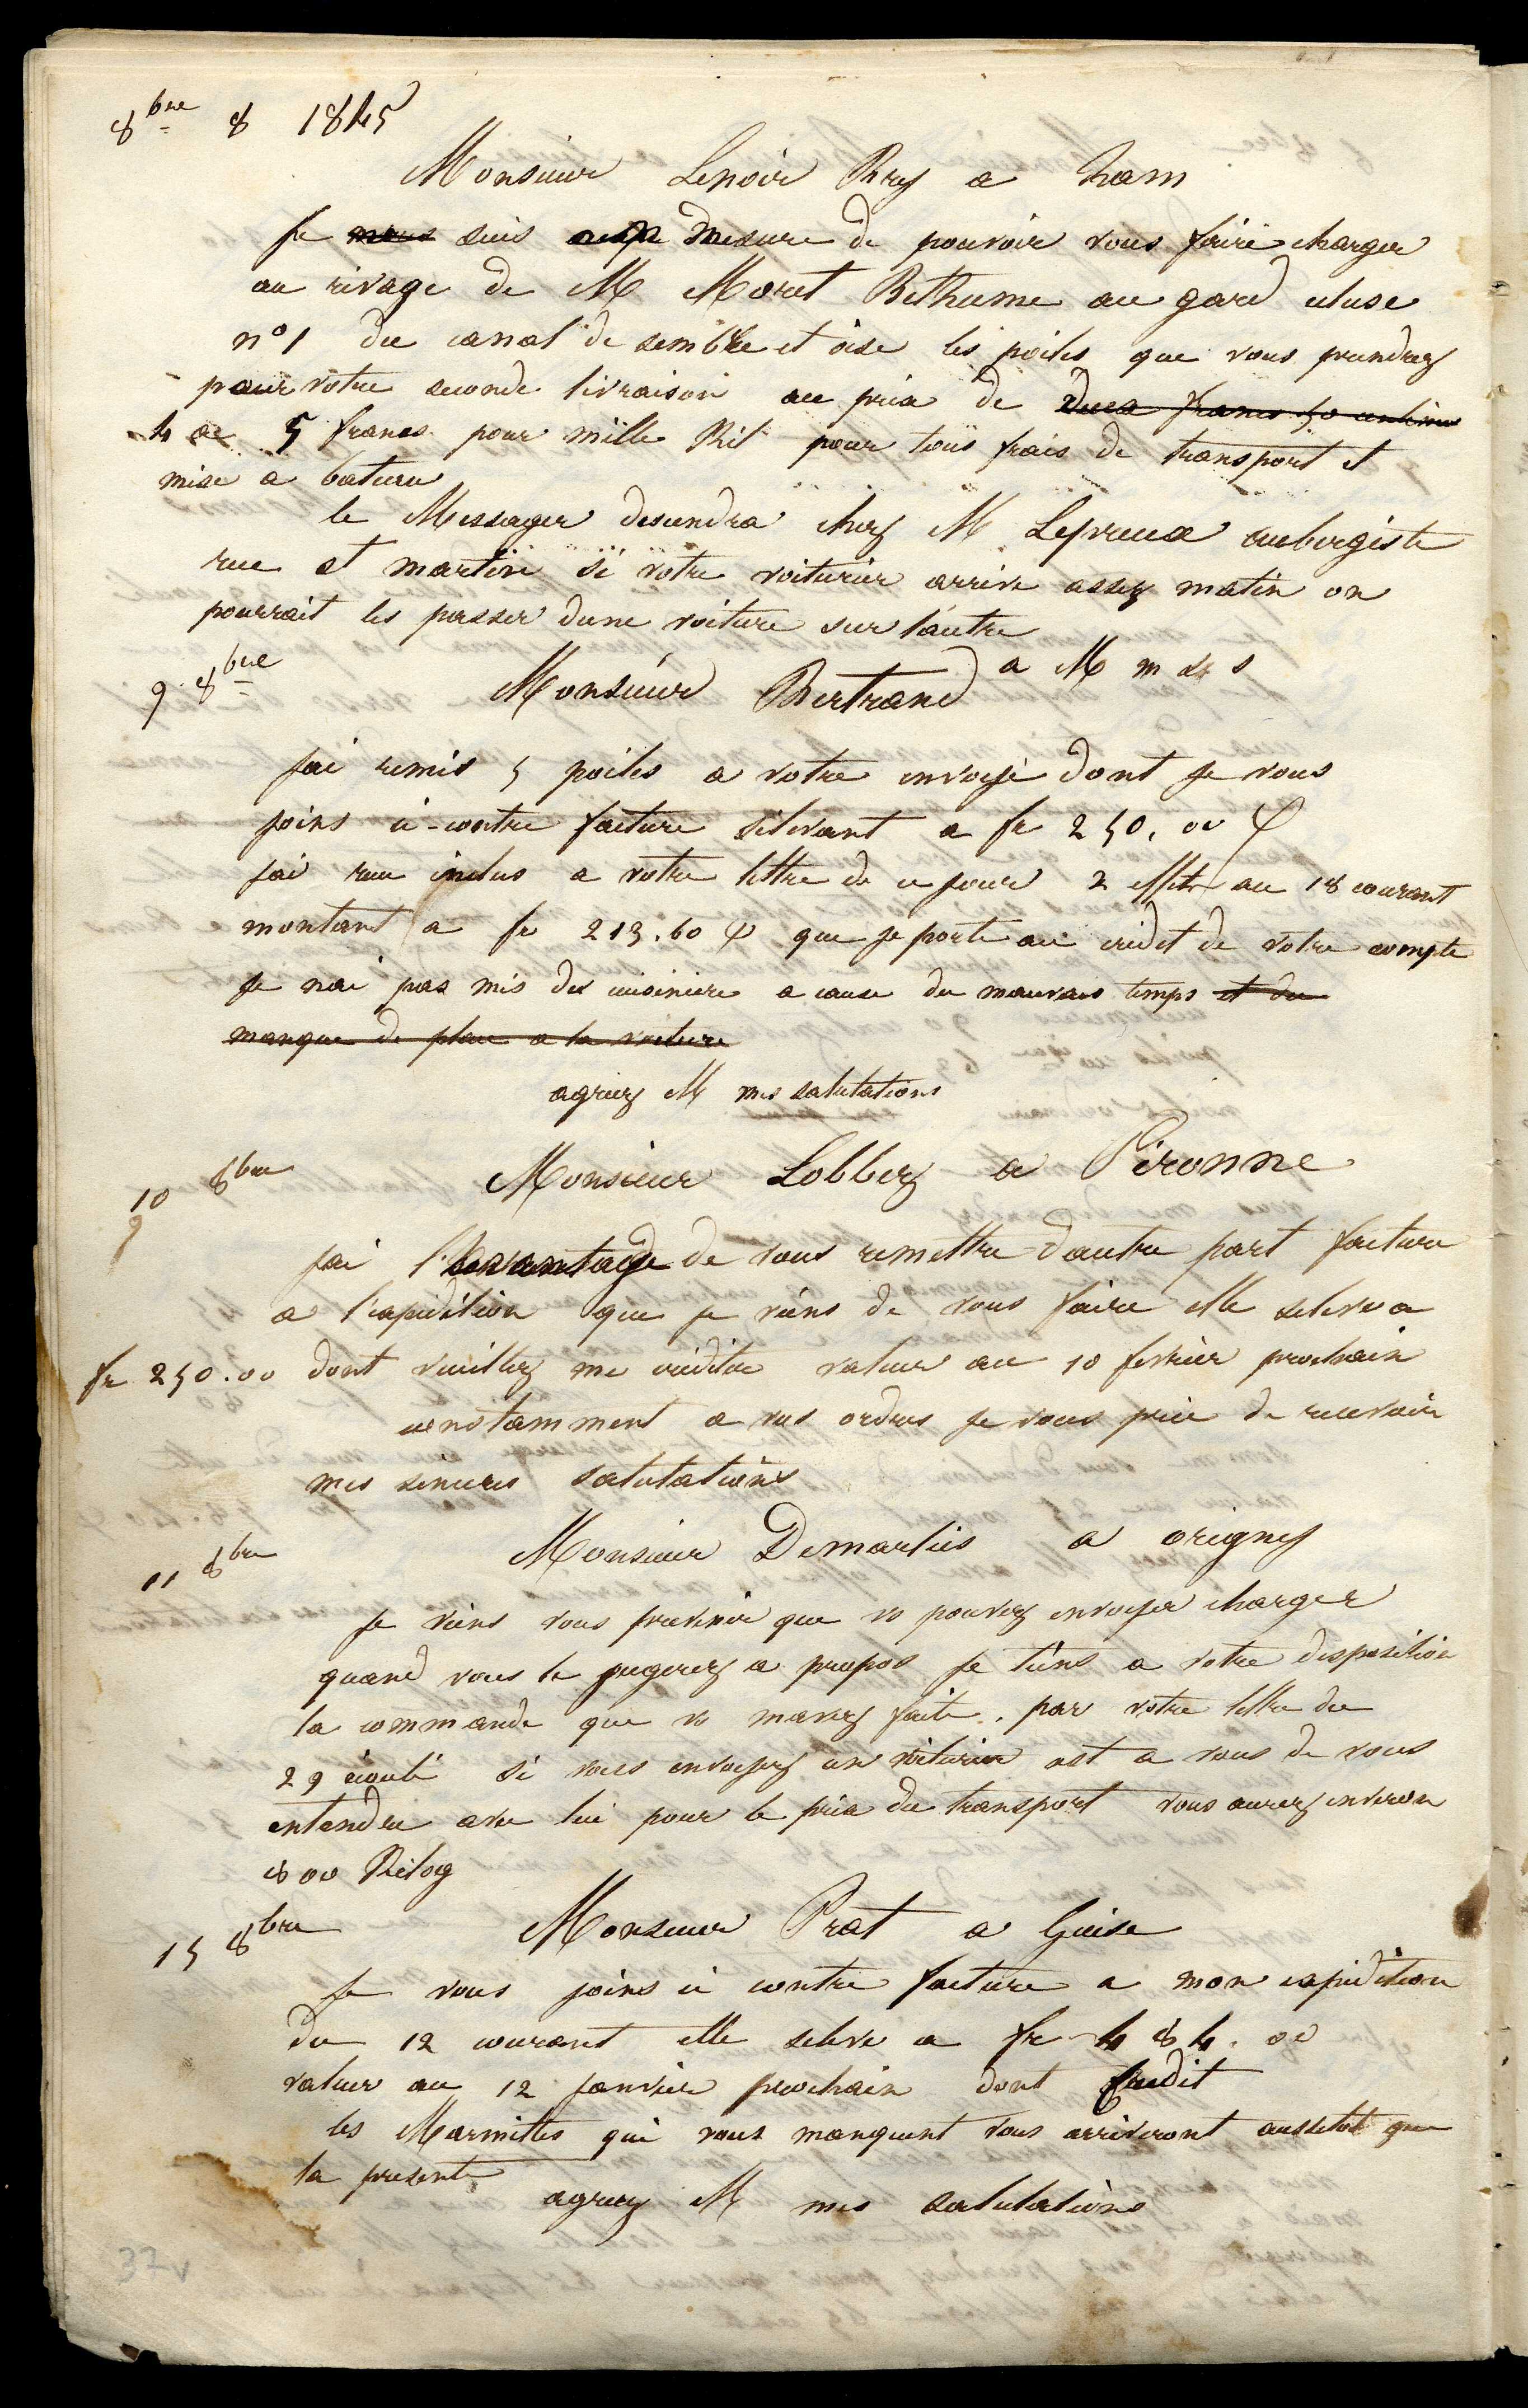 8bre 8 1845
Monsieur Lenoir Rey a ham
Je nous suis mesure de pouvoir vous faire charger
au rivage de M Moret Bethume au gard ecluse
n° 1 du canal de sembre et oise les poiles que vous prendrez
pour votre seconde livraison au prix de deux francs 50 centimes
4 a 5 francs pour mille Kil pour tous frais de transport et
mise a bateau
le Messager desendra chez M Lepreux aubergiste
rue st martin si votre voiturier arrive assez matin on
pourrait les passer dune voiture sur l'autre
a M m s
9 8bre Monsieur Bertrand
Jai remis 5 poiles a votre envoyé dont je vous
joins ci-contre facture s'elevant a fr 250,00
jai recu inclus a votre lettre de ce jour 2 effets au 18 courant
montant a fr 213.60 que je porte au credit de votre compte
Je nai pas mis des cuisiniere a cause du mauvais temps et du
manque de place a la voiture
agreez M mes salutations
10 8bre Monsieur Lobbez a Péronne
9
jai l'avantage de vous remettre dautre part facture
a l'expédition que je viens de vous faire elle seleve a
fr 250.00 dont veuillez me créditer valeur au 10 fevrier prochain
constamment a vos ordres je vous prie de recevoir
mes sinceres salutations
11 8bre Monsieur Demarlis a origny
Je viens vous prevenir que vs pouvez envoyer charger
quand vous le jugerez a propos je tiens a votre disposition
la commande que vs mavez faite par votre lettre du
29 aout si vous envoyez un voiturier cest a vous de vous
entendre avec lui pour le prix du transport vous aurez environ
800 Kilog
15 8bre Monsieur Prat a Guise
Je vous joins ci contre facture a mon expedition
du 12 courant elle seleve a fr 484.00
valeur au 12 janvier prochain dont Crédit
les Marmittes qui vous manquent vous arriveront aussitot que
la presente
agreez M mes salutations
37v